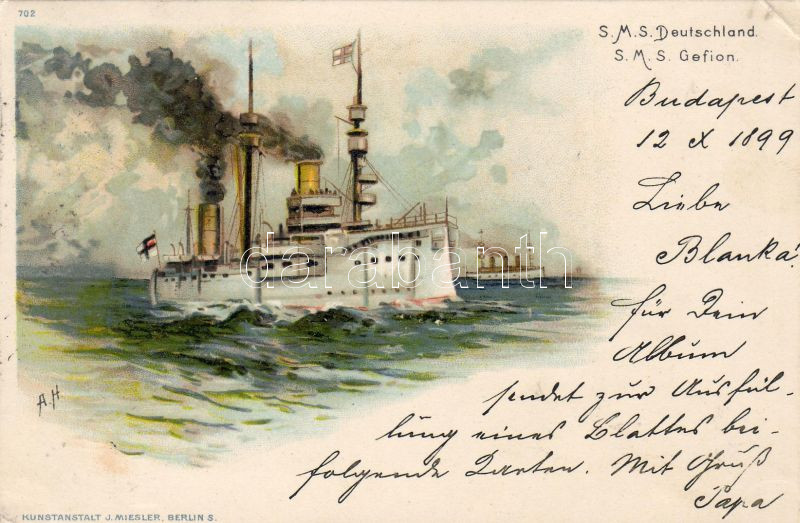 702
S.M.S. Deutschland.
S.M.S. Gefion.
Budapest
12 X 1899
Liebe
Blanka!
für Dein
Album
sendet zur Ausfül-
lung eines Blattes bei-
folgende Karten. Mit Gruß
Papa
darabanth
A.H
KUNSTANSTALT J. MIESLER, BERLIN S.